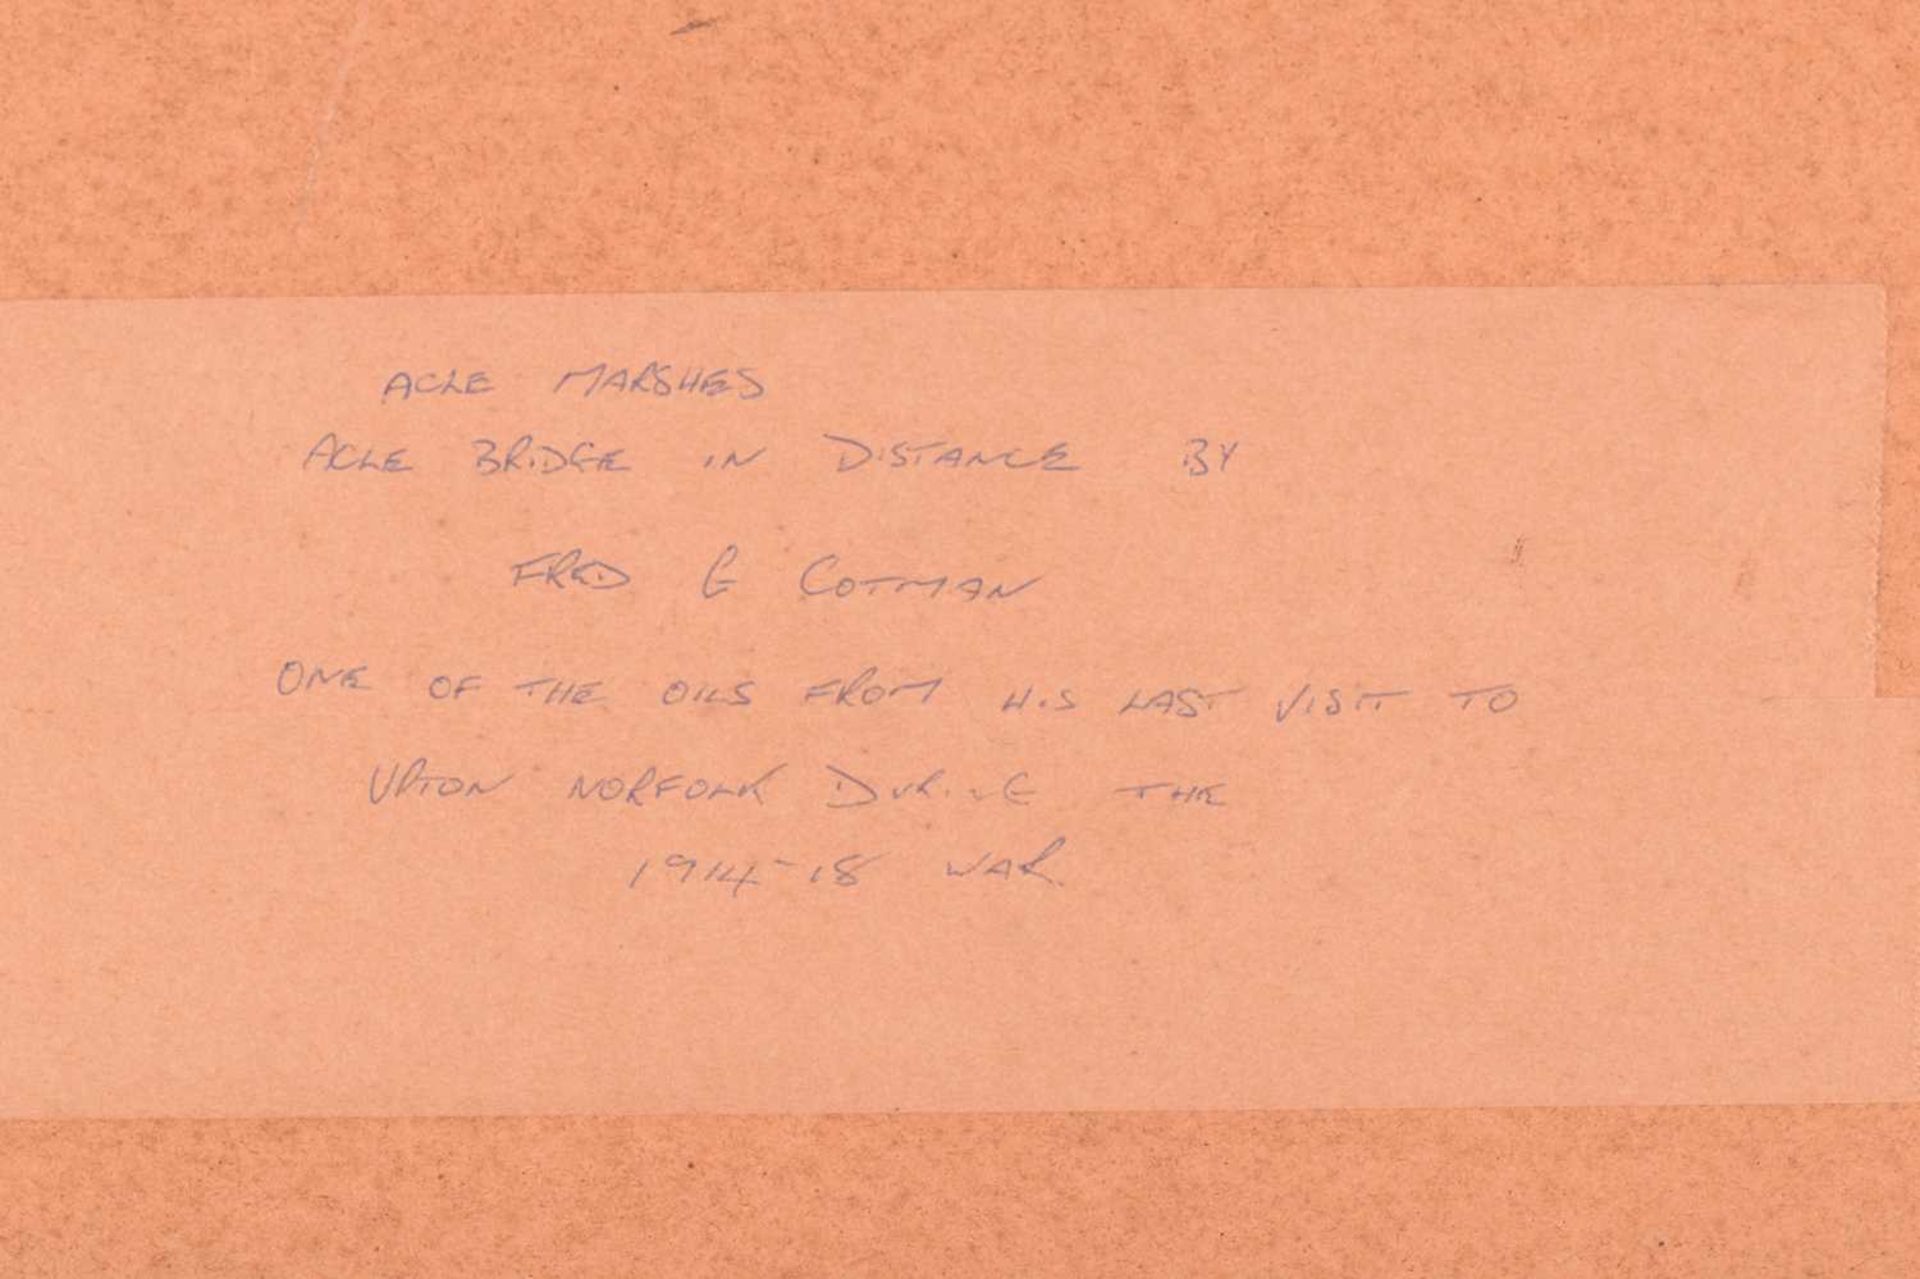 ACLE MARSHES
ACLE BRIDGE IN DISTANCE BY
FRED G COTMAN
ONE OF THE OILS FROM HIS LAST VISIT TO
UPTON NORFOLK DURING THE
1914-18 WAR